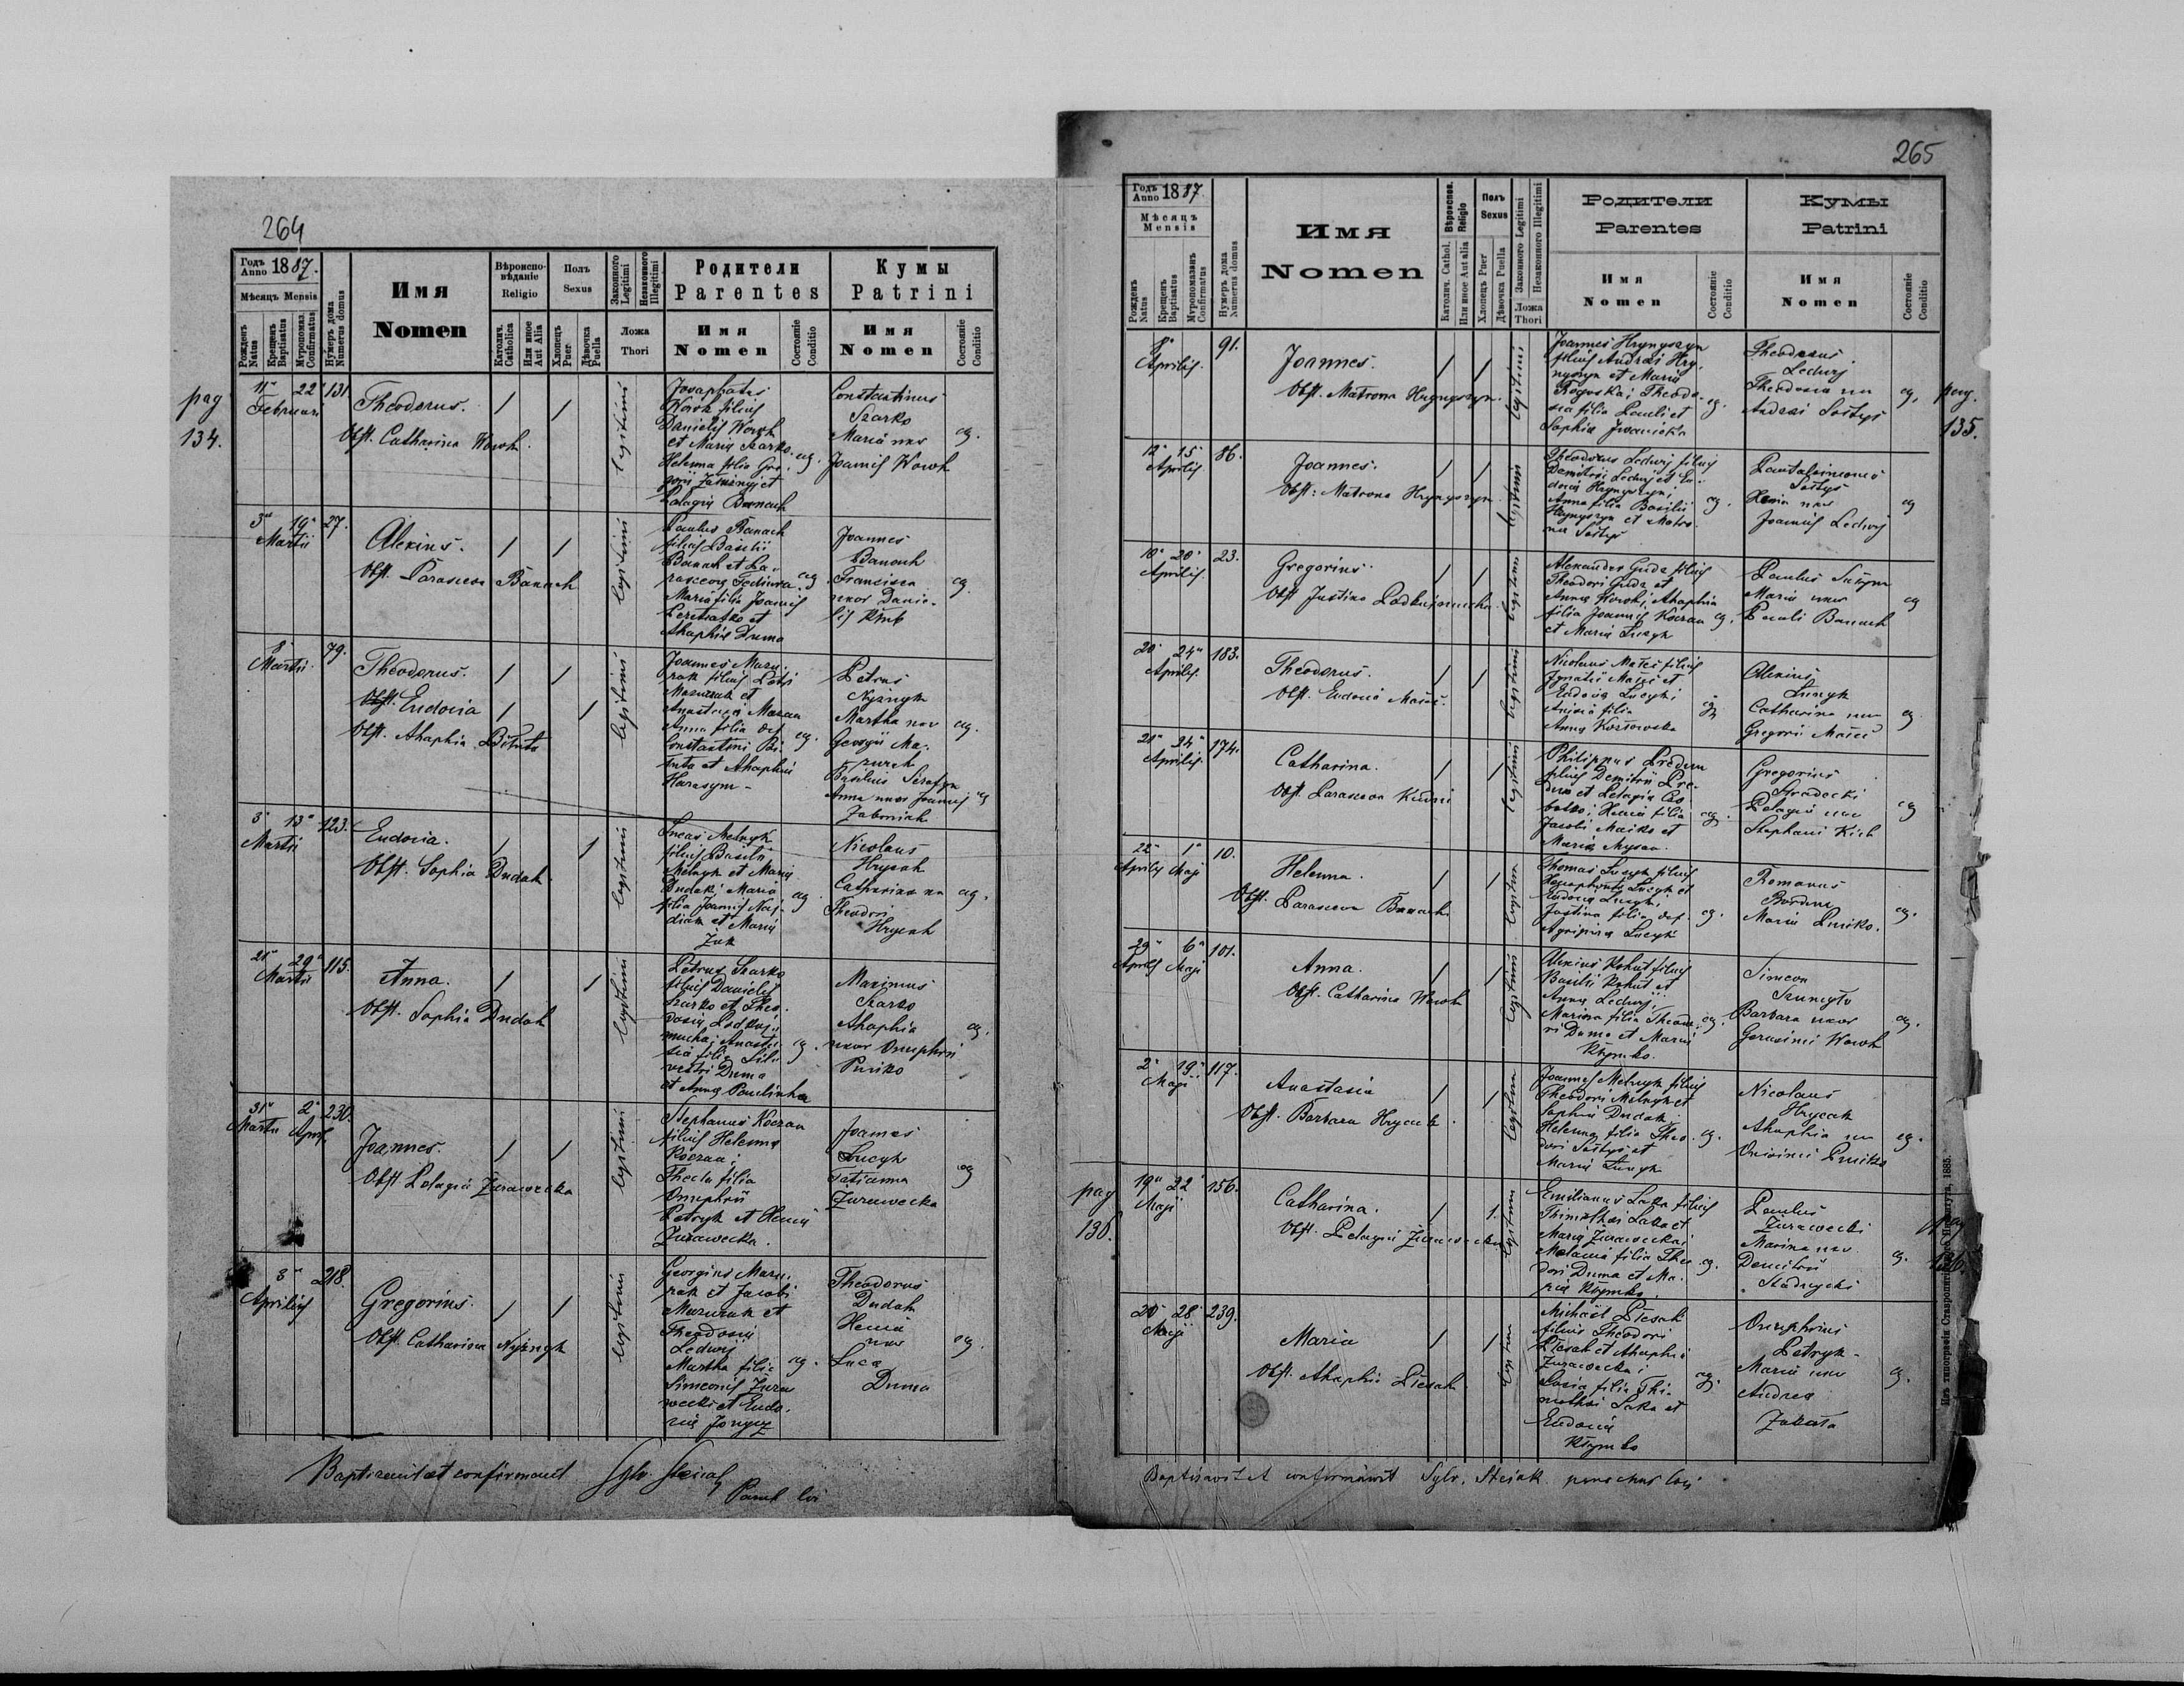 264
pag
134.
Годъ Anno 1887.
Мѣсяцъ Mensis
Рожденъ Natus
Крещенъ Baptisatus
Мѵропомаз. Confirmatus
Нумеръ дома Numerus domus
Имя
Nomen
Вѣроиспо-вѣданіе
Religio
Католич. Catholica
Или иное Aut Alia
Полъ
Sexus
Хлопецъ Puer
Дѣвочка Puella
Законного Legitimi
Незаконного Illegitimi
Ложа
Thori
Родители
Parentes
Имя
Nomen
Состояніе Conditio
Кумы
Patrini
Имя
Nomen
Состояніе Conditio
11 22 131.
Februari
Theodorus.
Obst. Catharina Wowk.
legitimi
Josaphatus
Wowk filius
Danielis Wowk
et Mariæ Szarko.
Helenna filia Gre-
gorii et
Pelagiæ Banach
ag.
Constantinus
Szarko
Maria uxor
Joannis Wowk
ag.
3 19 27.
Martii
Alexius.
Obst. Parascea Banach
legitimi
Paulus Banach
filius Basilii
Banach et Pa-
rasceæ
Maria filia Joannis
et
Ahaphiæ Duma
ag.
Joannes
Banach
Francisca
uxor Danie-
lis
ag.
8 79.
Martii
Theodorus.
Obst. Eudocia
Obst. Ahaphia Bihuta
legitimi
Joannes Mazu-
rak filius
Mazurak et
Anastasiæ
Anna filia def.
Constantini Bi-
huta et Ahaphiæ
Harasym-
ag.
Petrus
Nyżnyk
Martha uxor
Georgii Ma-
zurak
Basilius
Anna uxor Joannis
ag.
ag
8 13 123.
Martii
Eudocia.
Obst. Sophia Dudak.
legitimi
Lucas Melnyk
filius Basilii
Melnyk et Mariæ
Dudak; Maria
filia Joannis
et Mariæ
Żuk
ag.
Nicolaus
Hrycak
Catharina ux
Theodori
Hrycak
ag.
21 29 115.
Martii
Anna.
Obst. Sophia Dudak
legitimi
Petrus Szarko
filius Danielis
Szarko et Theo-
dosiæ Podkuj-
mucha; Anasta-
sia filia Sil-
vestri Duma
et Annæ
ag.
Maximus
Szarko
Ahaphia
uxor Onuphrii
ag.
31 2 230.
Martii Apr.
Joannes.
Obst. Pelagia Żurawecka
legitimi
Stephanus Koczan
filius Helennæ
Koczan;
Thecla filia
Onuphrii
Petryk et Xeniæ
Żurawecka.
Joannes
Lucyk
Tatianna
Żurawecka
ag
3 218.
Aprilis
Gregorius.
Obst. Catharina Nyżnyk
legitimi
Georgius Mazu-
rak et Jacobi
Mazurak et
Theodosiæ
Ledwij
Martha filia
Simeonis Żura-
wecki et Eudo-
ciæ
ag.
Theodorus
Dudak
Xenia
uxor
Luca
Duma
ag.
Baptizavit et confirmavit Sylv. Steciak
Paroch. loci
265
Годъ Anno 1887
Мѣсяцъ
Mensis
Рожденъ Natus
Крещенъ Baptisatus
Мѵропомазанъ Confirmatus
Нумеръ дома Numerus domus
Имя
Nomen
Вѣроиспов. Religio
Католич. Cathol.
Или иное Aut alia
Полъ
Sexus
Хлопецъ Puer
Дѣвочка Puella
Законного Legitimi
Незаконного Illegitimi
Ложа
Thori
Родители
Parentes
Имя
Nomen
Состояніе Conditio
Кумы
Patrini
Имя
Nomen
Состояніе Conditio
8 91.
Aprilis.
Joannes.
Obst. Matrona Hrynyszyn.
legitimi
Joannes Hrynyszyn
filius Andrei Hry-
nyszyn et Mariæ
Rogoska; Theodo-
sia filia Pauli et
Sophiæ Iwanicka
ag.
Theodorus
Ledwij
Theodosia ux
Andrei Sołtys
ag.
pag.
135.
12 15 86.
Aprilis
Joannes.
Obst: Matrona Hrynyszyn.
legitimi
Theodorus Ledwij filius
Demitrii Ledwij et Eu-
dociæ Hrynyszyn;
Anna filia Basilii
Hrynyszyn et Matro-
næ Sołtys
ag.
Pantaleimonus
Sołtys
Xenia uxor
Joannis Ledwij
ag
10 20 23.
Aprilis
Gregorius.
Obst Justina Podkujmucha.
legitimi
Alexander Gudz filius
Theodori Gudz et
Annæ; Ahaphia
filia Joannis Koczan
et Mariæ Lucyk
ag.
Paulus
Maria uxor
Pauli Banach
ag
20 24 183.
Aprilis
Theodorus.
Obst. Eudocia
legitimi
Nicolaus filius
Ignatii et
Eudociæ Lucyk;
filia
Annæ Kozłowska
ag.
Alexius
Lucyk
Catharina ux
Gregori
ag.
20 24 174.
Aprilis
Catharina.
Obst. Parascea
legitimi
Philippus
filius Demitrii
et Pelagiæ
Xenia filia
Jacobi et
Mariæ
ag.
Gregorius
Hradecki
Pelagia uxor
Stephani
ag
22 1 10.
Aprilis Maji
Helenna.
Obst. Parascea Banach.
legitimi
Thomas Lucyk filius
Lucyk et
Eudociæ Lucyk;
Justina filia def.
Agripinæ Lucyk
ag.
Romanus
Maria
ag.
29 6 101.
Aprilis Maji
Anna.
Obst. Catharina Wowk
legitimi
Alexius Kohut filius
Basilii Kohut et
Annæ Ledwij;
Marina filia Theodo-
ri Duma et Mariæ
Kłymko.
ag.
Simeon
Barbara uxor
Gerasimi Wowk
ag.
2 19 117.
Maji
Anastasia
Obst. Barbara Hrycak.
legitimi
Joannes Melnyk filius
Theodori Melnyk et
Sophiæ Dudak;
Helenna filia Theo-
dori Sołtys et
Mariæ Lucyk
ag.
Nicolaus
Hrycak
Ahaphia ux
ag.
pag
136.
19 22 156.
Maji
Catharina.
Obst. Pelagia Żurawecka
legitimi
Emilianus Saka filius
Thimothei Saka et
Mariæ Żurawecka;
Melania filia Theo-
dori Duma et Ma-
riæ Kłymko.
ag.
Paulus
Żurawecki
Marina uxor
Demitrii
ag.
pag
136.
20 28 239.
Maji
Maria
Obst. Ahaphia Plesak
Michaël Plesak
filius Theodori
Plesak et Ahaphiæ
Żurawecka;
filia Thi-
mothei Saka et
Eudociæ
Kłymko
ag.
Onuphrius
Petryk-
Maria uxor
Andrea
ag.
Baptisavit et confirmavit Sylv. Steciak parochus loci
Изъ типографіи Ставропигійского Института, 1885.